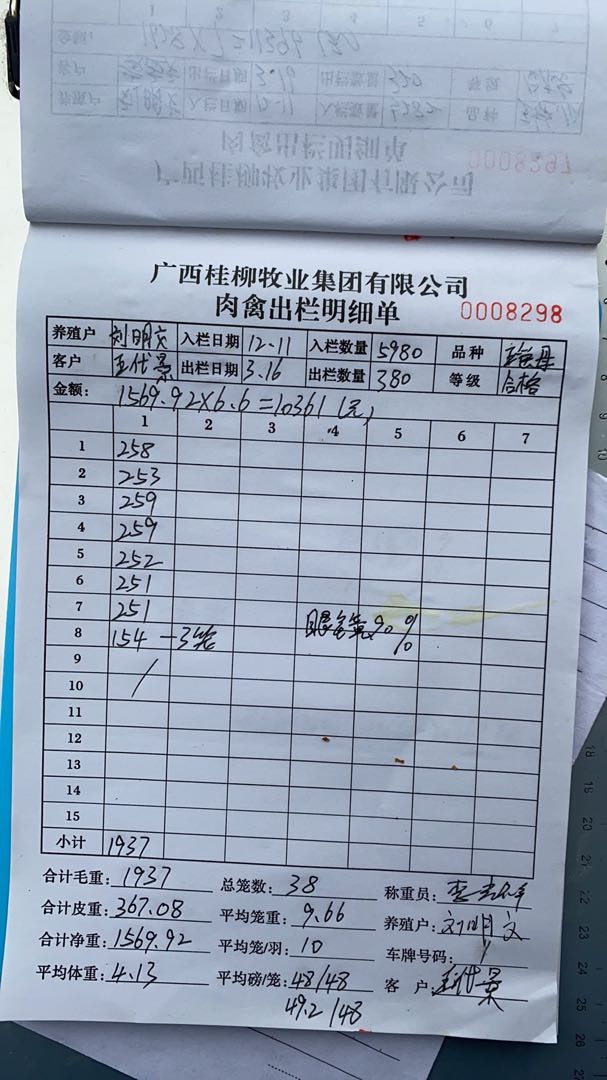 0008297
广西桂柳牧业集团有限公司
肉禽出栏明细单
0008298
养殖户 刘明文 入栏日期 12-11 入栏数量 5980 品种
客户 王代景 出栏日期 3.16 出栏数量 380 等级 合格
金额: 1569.92×6.6=10361(元)
1 2 3 4 5 6 7
1 258
2 253
3 259
4 259
5 252
6 251
7 251
8 154 一3笼 90%
9
10 /
11
12
13
14
15
小计 1937
合计毛重: 1937 总笼数: 38 称重员:
合计皮重: 367.08 平均笼重: 9.66 养殖户: 刘明文
合计净重: 1569.92 平均笼/羽: 10 车牌号码: /
平均体重: 4.13 平均磅/笼: 48/48 客 户: 王代景
49.2/48